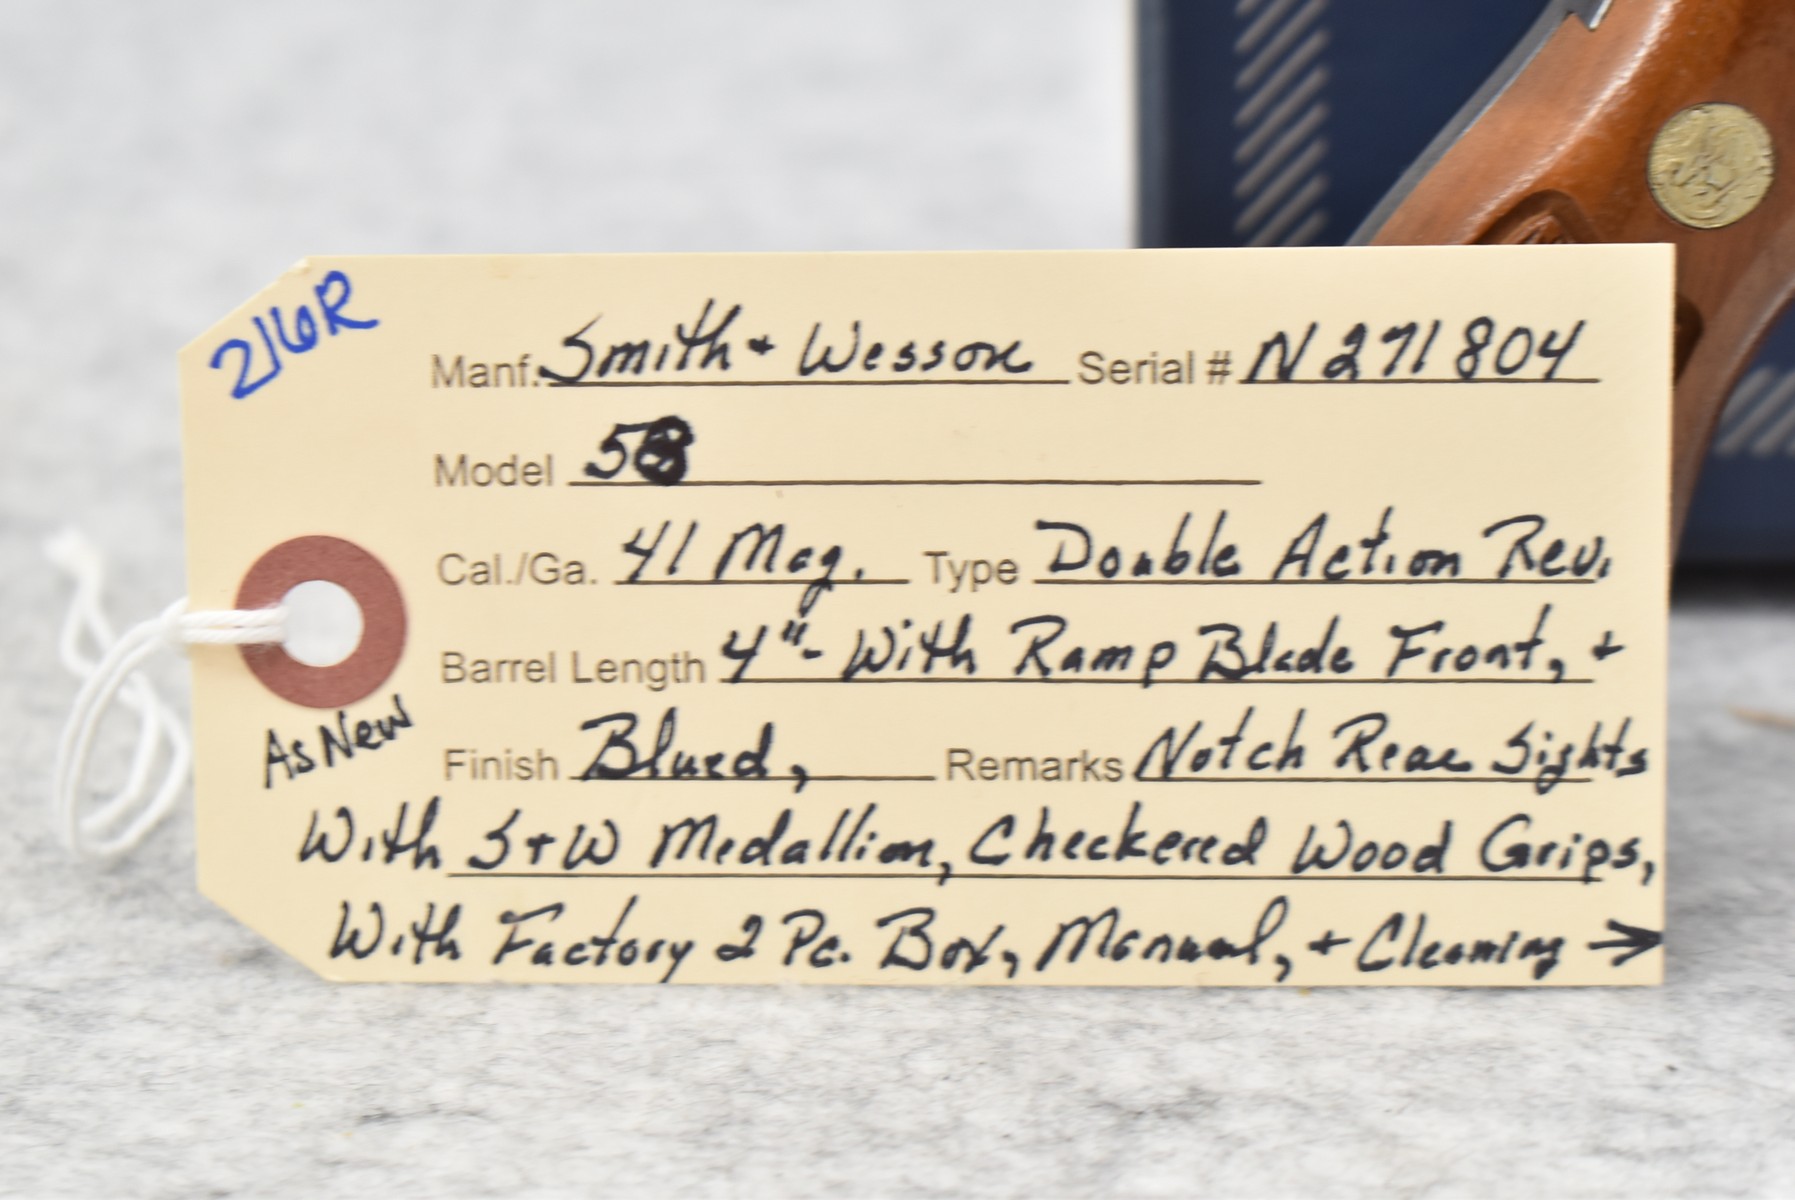 216R
Manf. Smith + Wesson Serial # N271804
Model 58
Cal./Ga. 41 Mag. Type Double Action Rev.
Barrel Length 4"- With Ramp Blade Front, +
As New
Finish Blued, Remarks Notch Rear Sights
With S+W Medallion, Checkered Wood Grips,
With Factory 2 Pc. Box, Manual, + Cleaning →